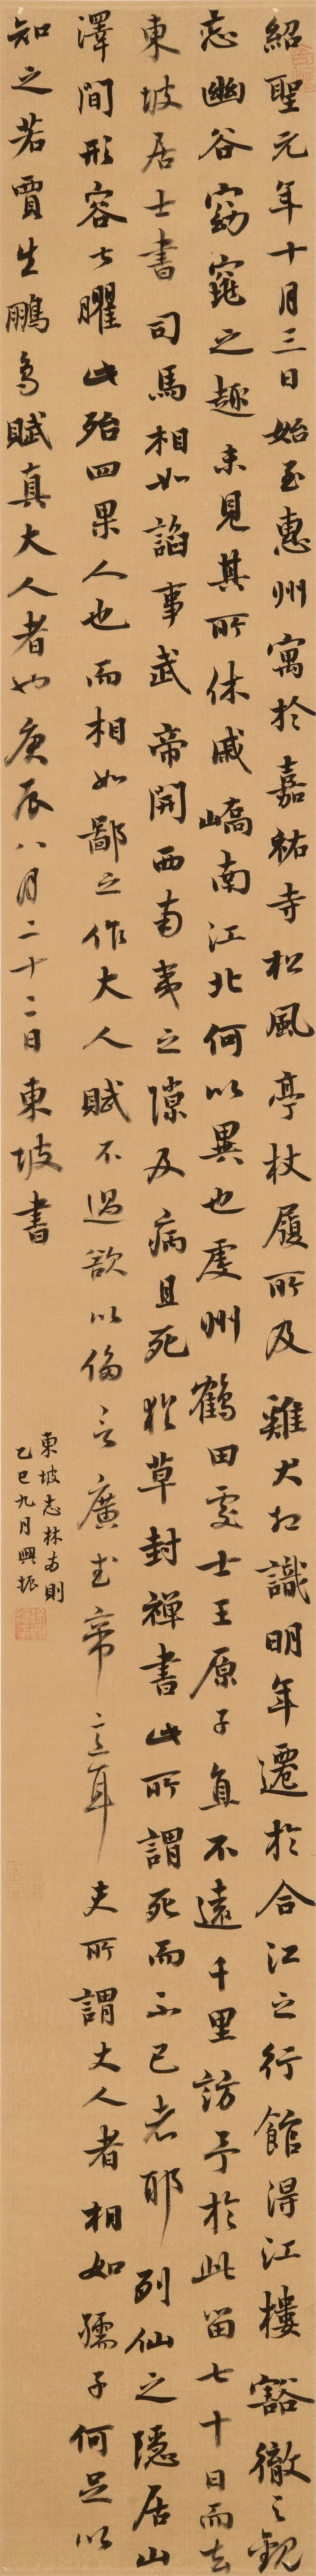 紹聖元年十月三日始至惠州寓於嘉祐寺松風亭杖履所及雞犬相識明年遷於合江之行館得江樓豁徹之觀
忘幽谷窈窕之趣未見其所休戚嶠南江北何以異也虔州鶴田處士王原子直不遠千里訪予於此留七十日而去
東坡居士書司馬相如諂事武帝開西南夷之隙及病且死猶草封禪書此所謂死而不已者耶列仙之隱居山
澤間形容甚臞此殆四果人也而相如鄙之作大人賦不過欲以侈言廣武帝意耳夫所謂大人者相如孺子何足以
知之若賈生鵩鳥賦真大人者也庚辰八月二十二日東坡書
東坡志林兩則
乙巳九月興振